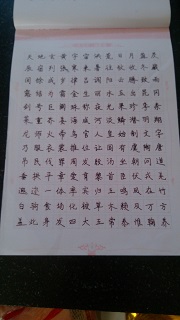 天地玄黄宇宙洪荒日月盈昃
辰宿列张寒来暑往秋收冬藏
闰余成岁律吕调阳云腾致雨
露结为霜金生丽水玉出昆冈
剑号巨阙珠称夜光果珍李柰
菜重芥姜海咸河淡鳞潜羽翔
龙师火帝鸟官人皇始制文字
乃服衣裳推位让国有虞陶唐
吊民伐罪周发殷汤坐朝问道
垂拱平章爱育黎首臣伏戎羌
遐迩一体率宾归王鸣凤在竹
白驹食场化被草木赖及万方
盖此身发四大五常恭惟鞠养